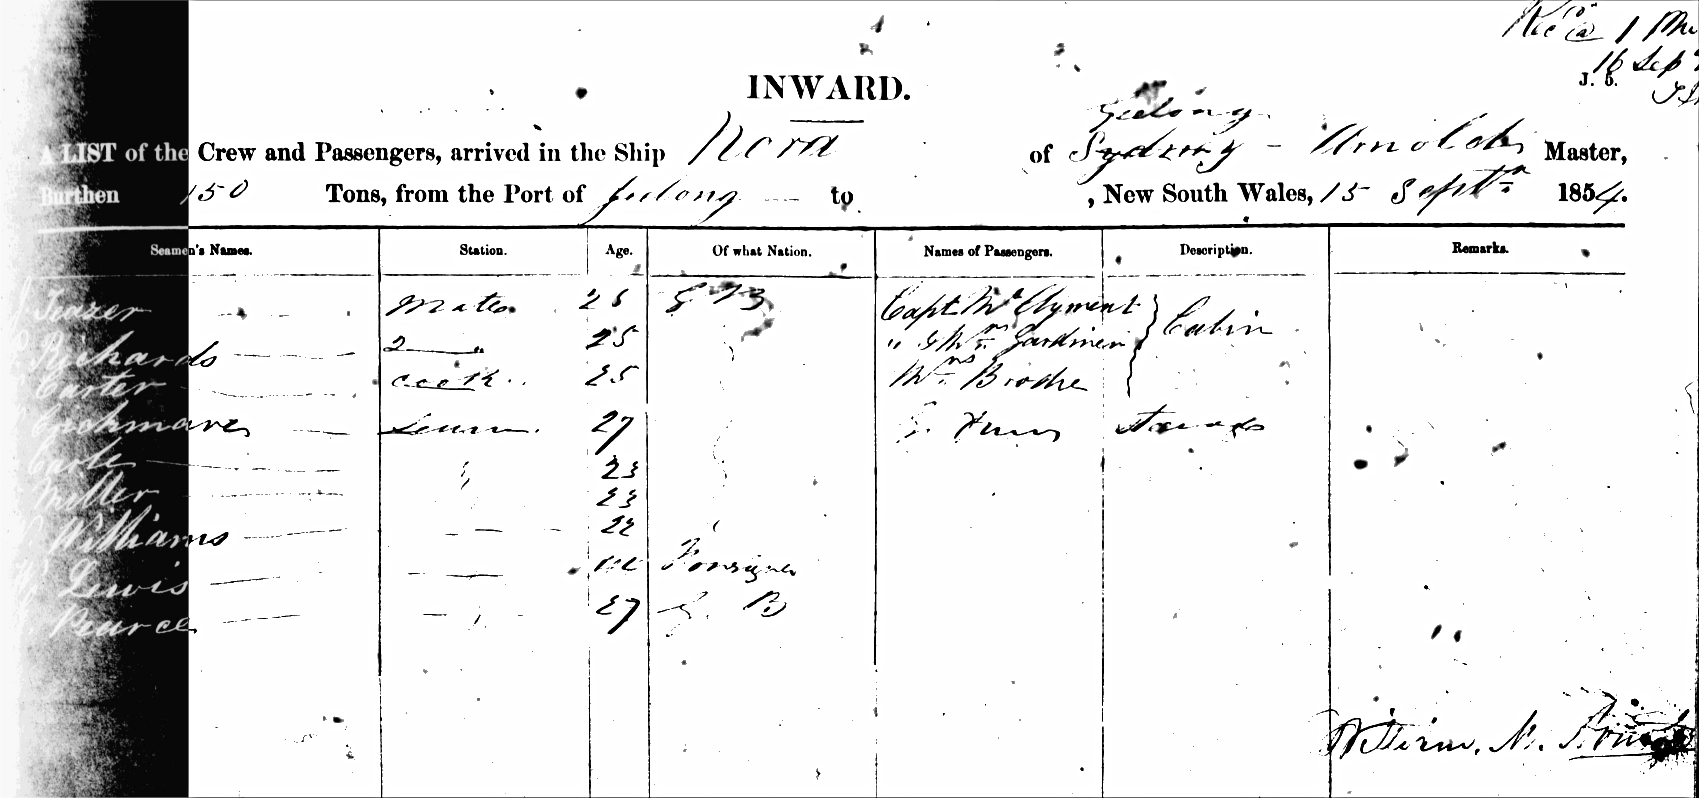 1
16 Sep
J. 5.
INWARD.
Geelong
A LIST of the Crew and Passengers, arrived in the Ship Nora of Sydney - Arnold Master,
Burthen 150 Tons, from the Port of Geelong to , New South Wales, 15 Septr 1854.
Seamen's Names. Station. Age. Of what Nation. Names of Passengers. Description. Remarks.
Frazer Mate 25 G B Capt McClyment Cabin
Richards 2 " 25 " & Mrs Gardiner
Carter Cook 25 Mrs Brodie
27
Carle " 23
Miller 23
Williams 22
W Lewis Foreigner
Pearce " 27 G. B
William